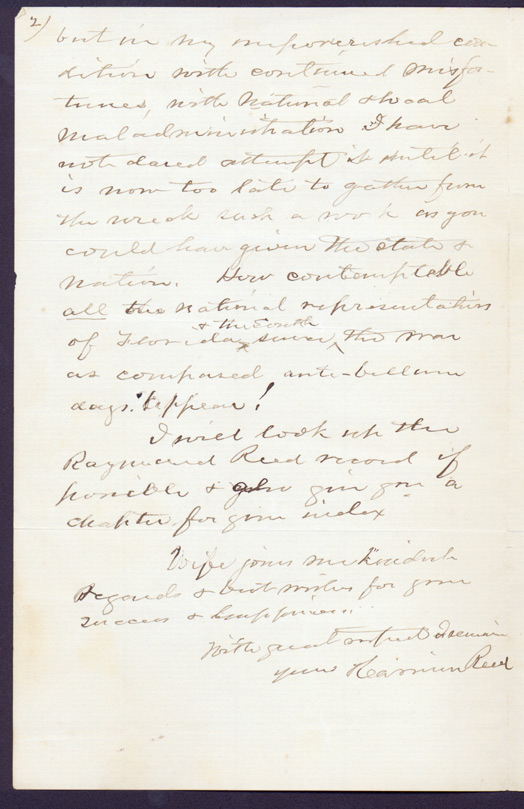 2)
but in my impoverished con-
dition with continued misfor-
tunes, with National & local
Maladministration I have
not dared attempt it until it
is now too late to gather from
the wreck such a work as you
could have given the State &
Nation. How contemptible
all the National representation
& the South
of Florida, since the war
as compared ante-bellum
days! appear!
I will look up the
Raymond Reed record if
possible & also give you a
chapter for your index
Wife joins me in kindest
regards & best wishes for your
success & happiness.
With great respect I remain
yours Harrison Reed